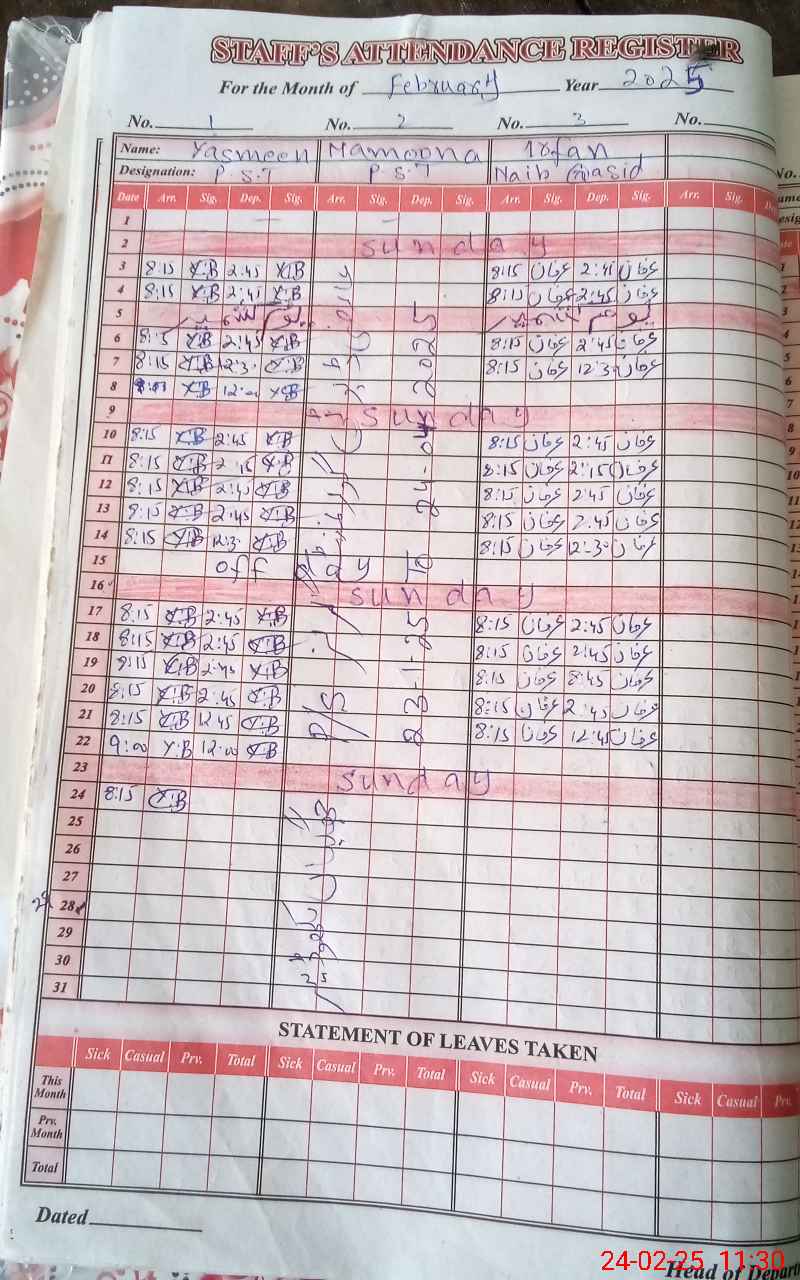 STAFF'S ATTENDANCE REGISTER
For the Month of February Year 2025
No. 1 No. 2 No. 3 No.
Name: Yasmeen Mamoona Irfan
Designation: P.S.T P.S.T Naib Qasid
Date Arr. Sig. Dep. Sig. Arr. Sig. Dep. Sig. Arr. Sig. Dep. Sig. Arr. Sig.
1
2 Sunday
3 8:15 Y.B 2:45 Y.B 8:15 عرفان 2:45 عرفان
4 8:15 Y.B 2:45 Y.B 8:15 عرفان 2:45 عرفان
5 یوم کشمیر یوم کشمیر
6 8:15 Y.B 2:45 Y.B 8:15 عرفان 2:45 عرفان
7 8:15 Y.B 12:30 Y.B 8:15 عرفان 12:30 عرفان
8 Y.B 12:00 Y.B
9 Sunday
10 8:15 Y.B 2:45 Y.B 8:15 عرفان 2:45 عرفان
11 8:15 Y.B 2:15 Y.B 8:15 عرفان 2:15 عرفان
12 8:15 Y.B 2:45 Y.B 8:15 عرفان 2:45 عرفان
13 8:15 Y.B 2:45 Y.B 8:15 عرفان 2:45 عرفان
14 8:15 Y.B 12:30 Y.B 8:15 عرفان 12:30 عرفان
15 off day
16 Sunday
17 8:15 Y.B 2:45 Y.B 8:15 عرفان 2:45 عرفان
18 8:15 Y.B 2:45 Y.B 8:15 عرفان 2:45 عرفان
19 8:15 Y.B 2:45 Y.B 8:15 عرفان 8:45 عرفان
20 8:15 Y.B 2:45 Y.B 8:15 عرفان 2:45 عرفان
21 8:15 Y.B 12:45 Y.B 8:15 عرفان 12:45 عرفان
22 9:00 Y.B 12:00 Y.B
23 Sunday
24 8:15 Y.B
25
26
27
28
29
30
31
23-1-25 To 24-04-2025
STATEMENT OF LEAVES TAKEN
Sick Casual Prv. Total Sick Casual Prv. Total Sick Casual Prv. Total Sick Casual Prv.
This Month
Prv. Month
Total
Dated
Head of Depart
24-02-25 11:30